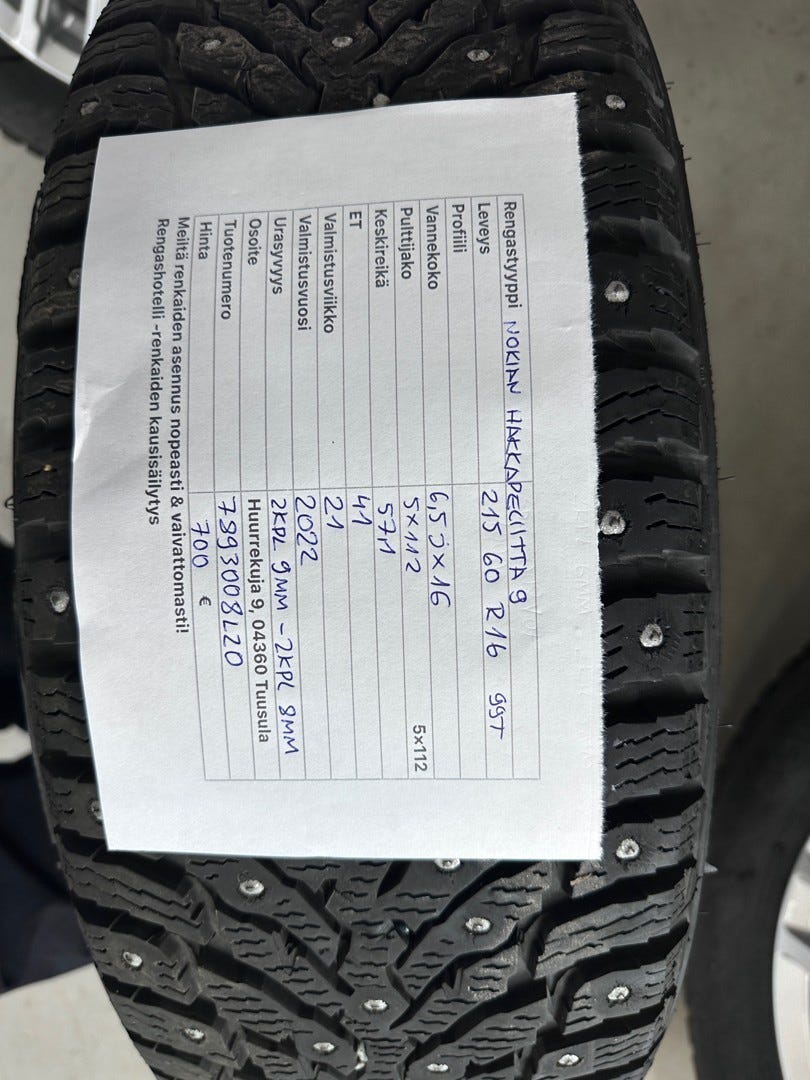 Rengastyyppi NOKIAN HAKKAPELIITTA 9
Leveys 215 60 R16 99T
Profiili
Vannekoko 6,5J x 16
Pulttijako 5x112 5x112
Keskireikä 57,1
ET 41
Valmistusviikko 21
Valmistusvuosi 2022
Urasyvyys 2KPL 9MM - 2KPL 8MM
Osoite Huurrekuja 9, 04360 Tuusula
Tuotenumero 7893008L20
Hinta 700 €
Meiltä renkaiden asennus nopeasti & vaivattomasti!
Rengashotelli -renkaiden kausisäilytys